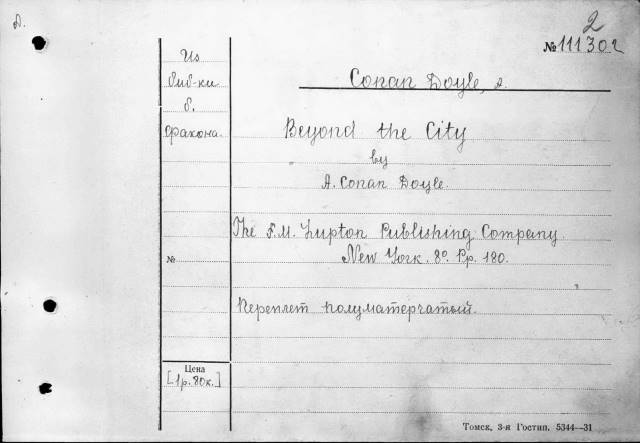 D.
2
№ 111302
Из
биб-ки
б.
факона.
Conan Doyle, A.
Beyond the City
by
A. Conan Doyle.
The F.M. Lupton Publishing Company.
New York. 8º. Pp. 180.
№
Переплет полуматерчатый.
Цена
[1р.80к.]
Томск, 3-я Гостип. 5344—31